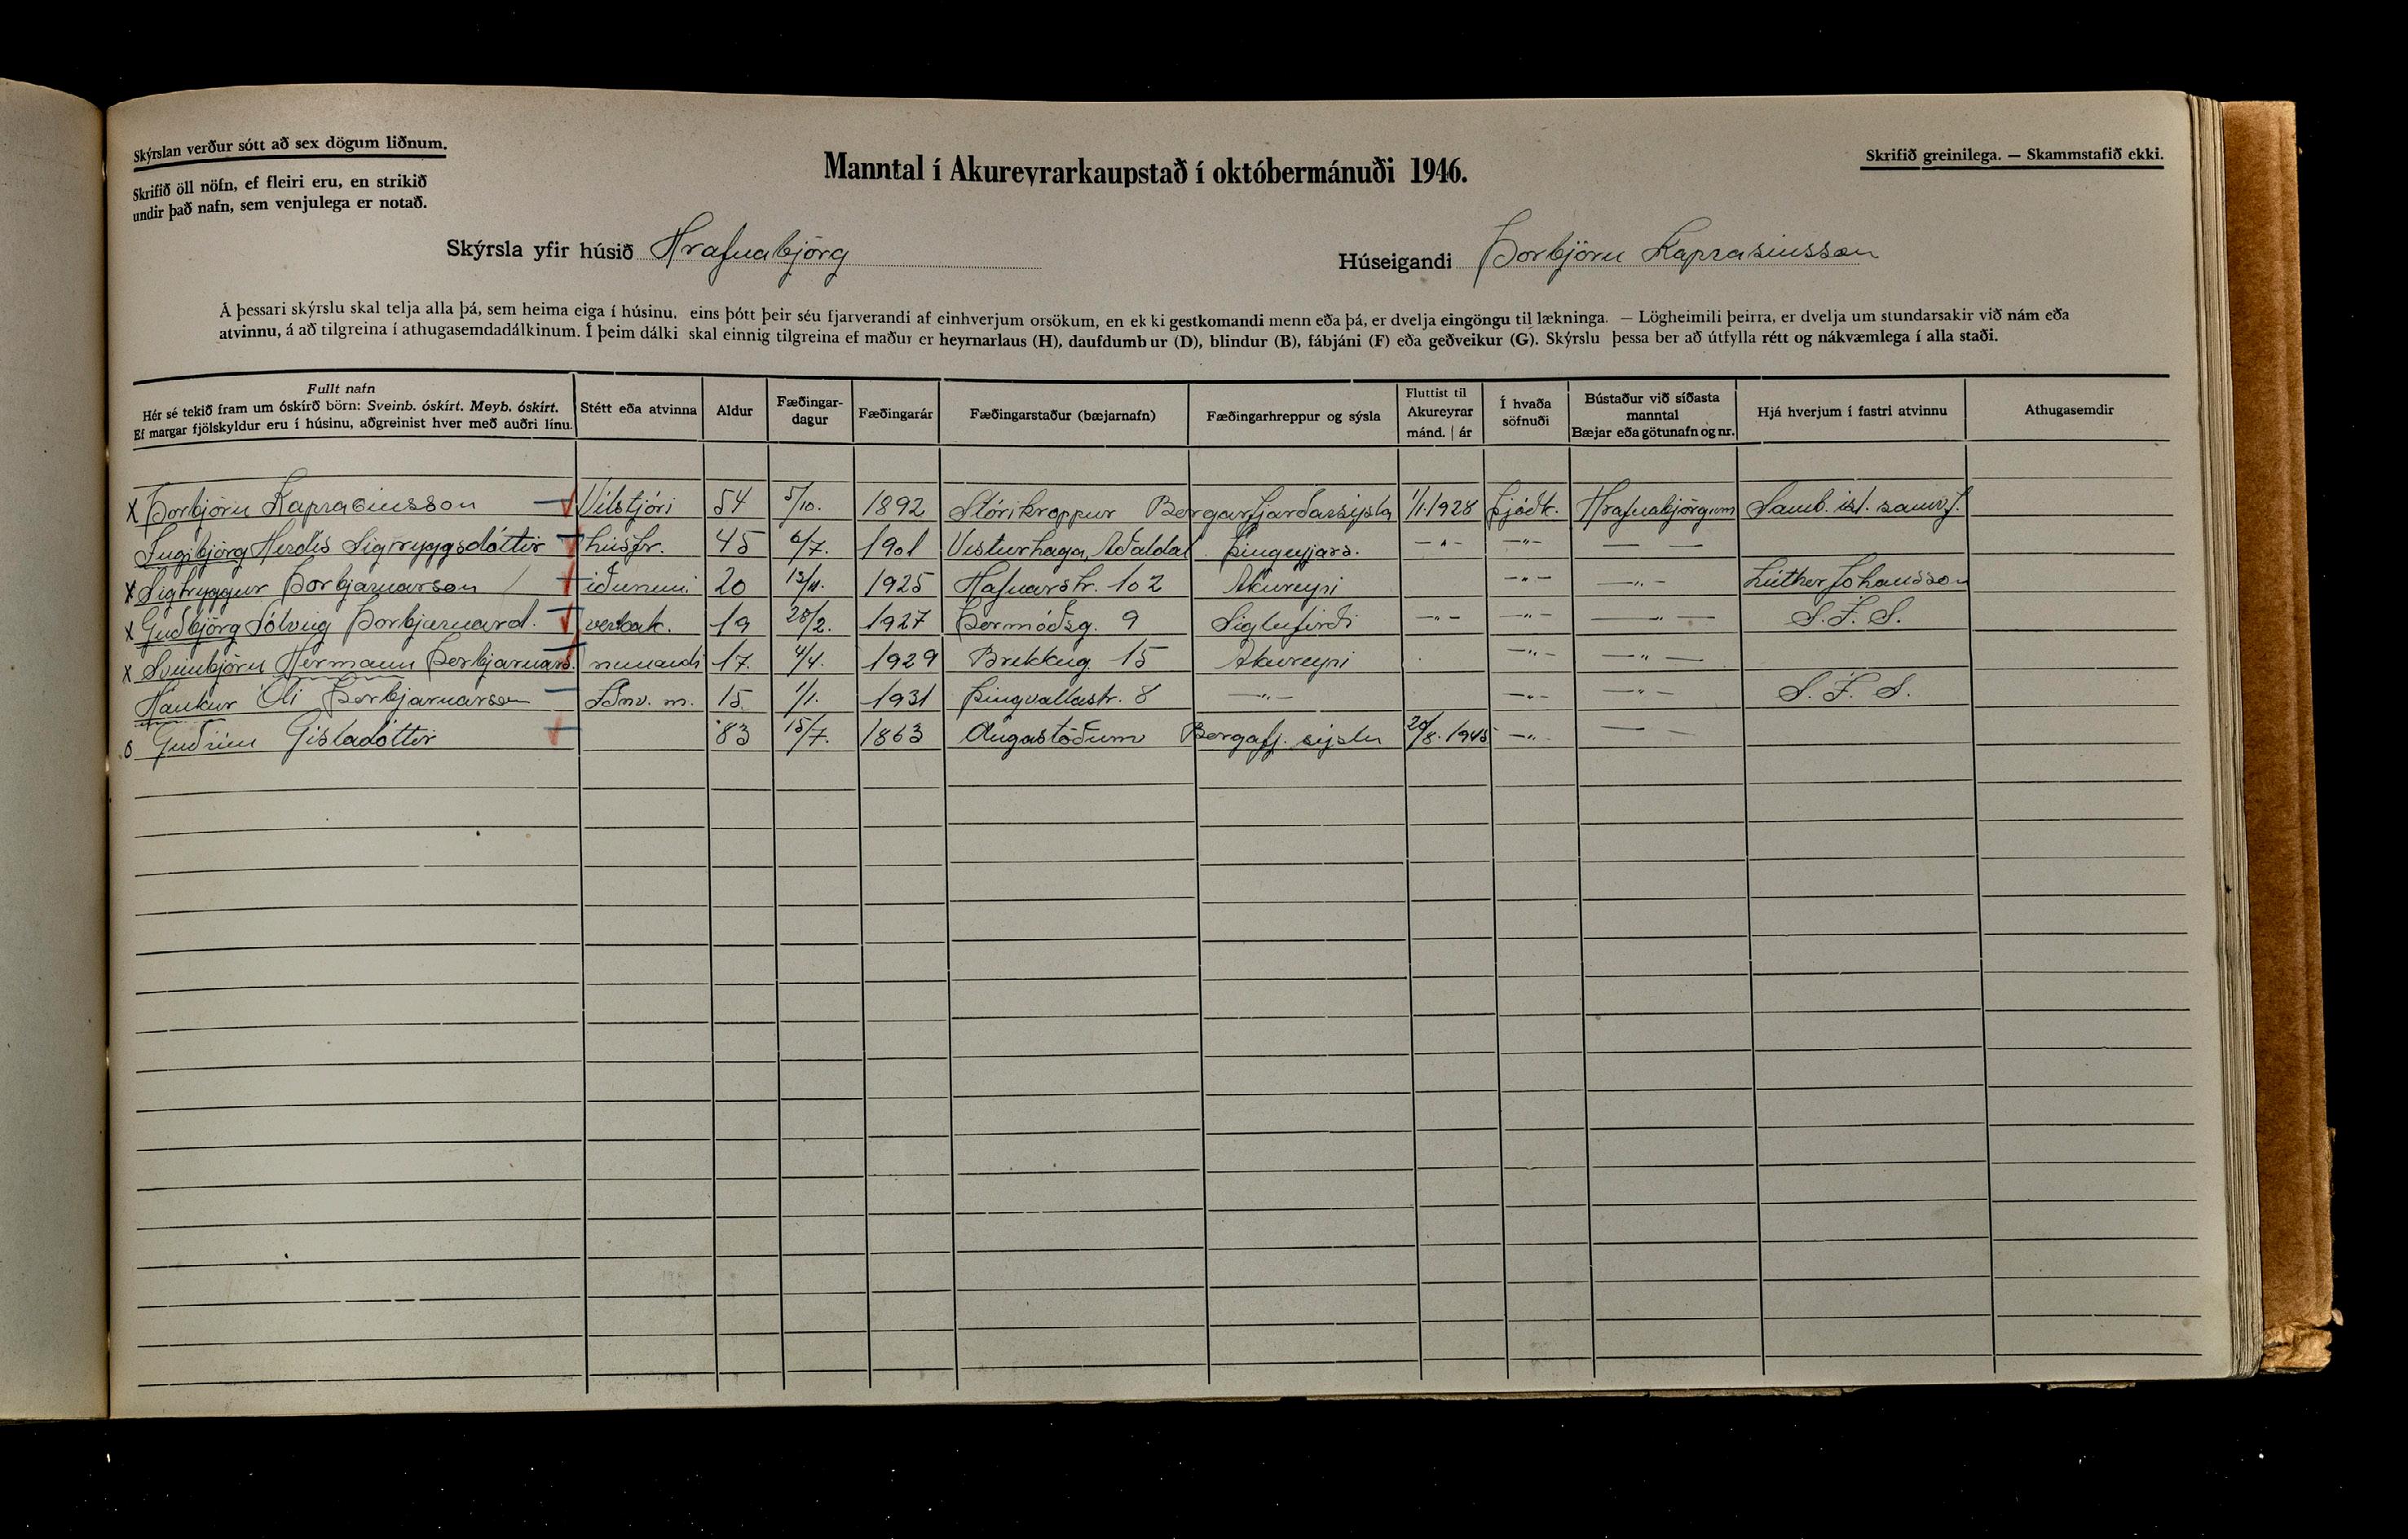 Skýrslan verður sótt að sex dögum liðnum.
Skrifið öll nöfn, ef fleiri eru, en strikið
undir það nafn, sem venjulega er notað.
Manntal í Akureyrarkaupstað í októbermánuði 1946.
Skrifið greinilega. — Skammstafið ekki.
Skýrsla yfir húsið Hrafnabjörg
Húseigandi Þorbjörn Kaprasiusson
Á þessari skýrslu skal telja alla þá, sem heima eiga í húsinu, eins þótt þeir séu fjarverandi af einhverjum orsökum, en ekki gestkomandi menn eða þá, er dvelja eingöngu til lækninga. — Lögheimili þeirra, er dvelja um stundarsakir við nám eða
atvinnu, á að tilgreina í athugasemdadálkinum. Í þeim dálki skal einnig tilgreina ef maður er heyrnarlaus (H), daufdumbur (D), blindur (B), fábjáni (F) eða geðveikur (G). Skýrslu þessa ber að útfylla rétt og nákvæmlega í alla staði.
Fullt nafn
Hér sé tekið fram um óskírð börn: Sveinb. óskírt. Meyb. óskírt.
Ef margar fjölskyldur eru í húsinu, aðgreinist hver með auðri línu.
Stétt eða atvinna
Aldur
Fæðingar-
dagur
Fæðingarár
Fæðingarstaður (bæjarnafn)
Fæðingarhreppur og sýsla
Fluttist til
Akureyrar
mánd. | ár
Í hvaða
söfnuði
Bústaður við síðasta
manntal
Bæjar eða götunafn og nr.
Hjá hverjum í fastri atvinnu
Athugasemdir
x Þorbjörn Kaprasiusson Vélstjóri 54 5/10. 1892 Stórikroppur Borgarfjarðarsýsla 1/1.1928 Þjóðk. Hrafnabjörgum Samb. ísl. samvf.
Ingibjörg Herdís Sigtryggsdóttir húsfr. 45 6/7. 1901 Vesturhaga, Aðaldal Þingeyjars. — " — — " — — —
x Sigtryggur Þorbjarnarson iðnnemi 20 13/11. 1925 Hafnarstr. 102 Akureyri — " — — " — Lúther Jóhansson
x Guðbjörg Sólveig Þorbjarnard. verkak. 19 28/2. 1927 Þormóðsg. 9 Siglufirði — " — — " — — " — S.Í.S.
x Sveinbjörn Hermann Þorbjarnars. nemandi 17. 4/4. 1929 Brekkug. 15 Akureyri — " — — " —
Haukur Óli Þorbjarnarson Iðnv. m. 15 1/1. 1931 Þingvallastr. 8 — " — — " — — " — S.Í.S.
o Guðrún Gísladóttir 83 15/7. 1863 Augastöðum Borgafj. sýslu 20/8. 1945 — " — — —